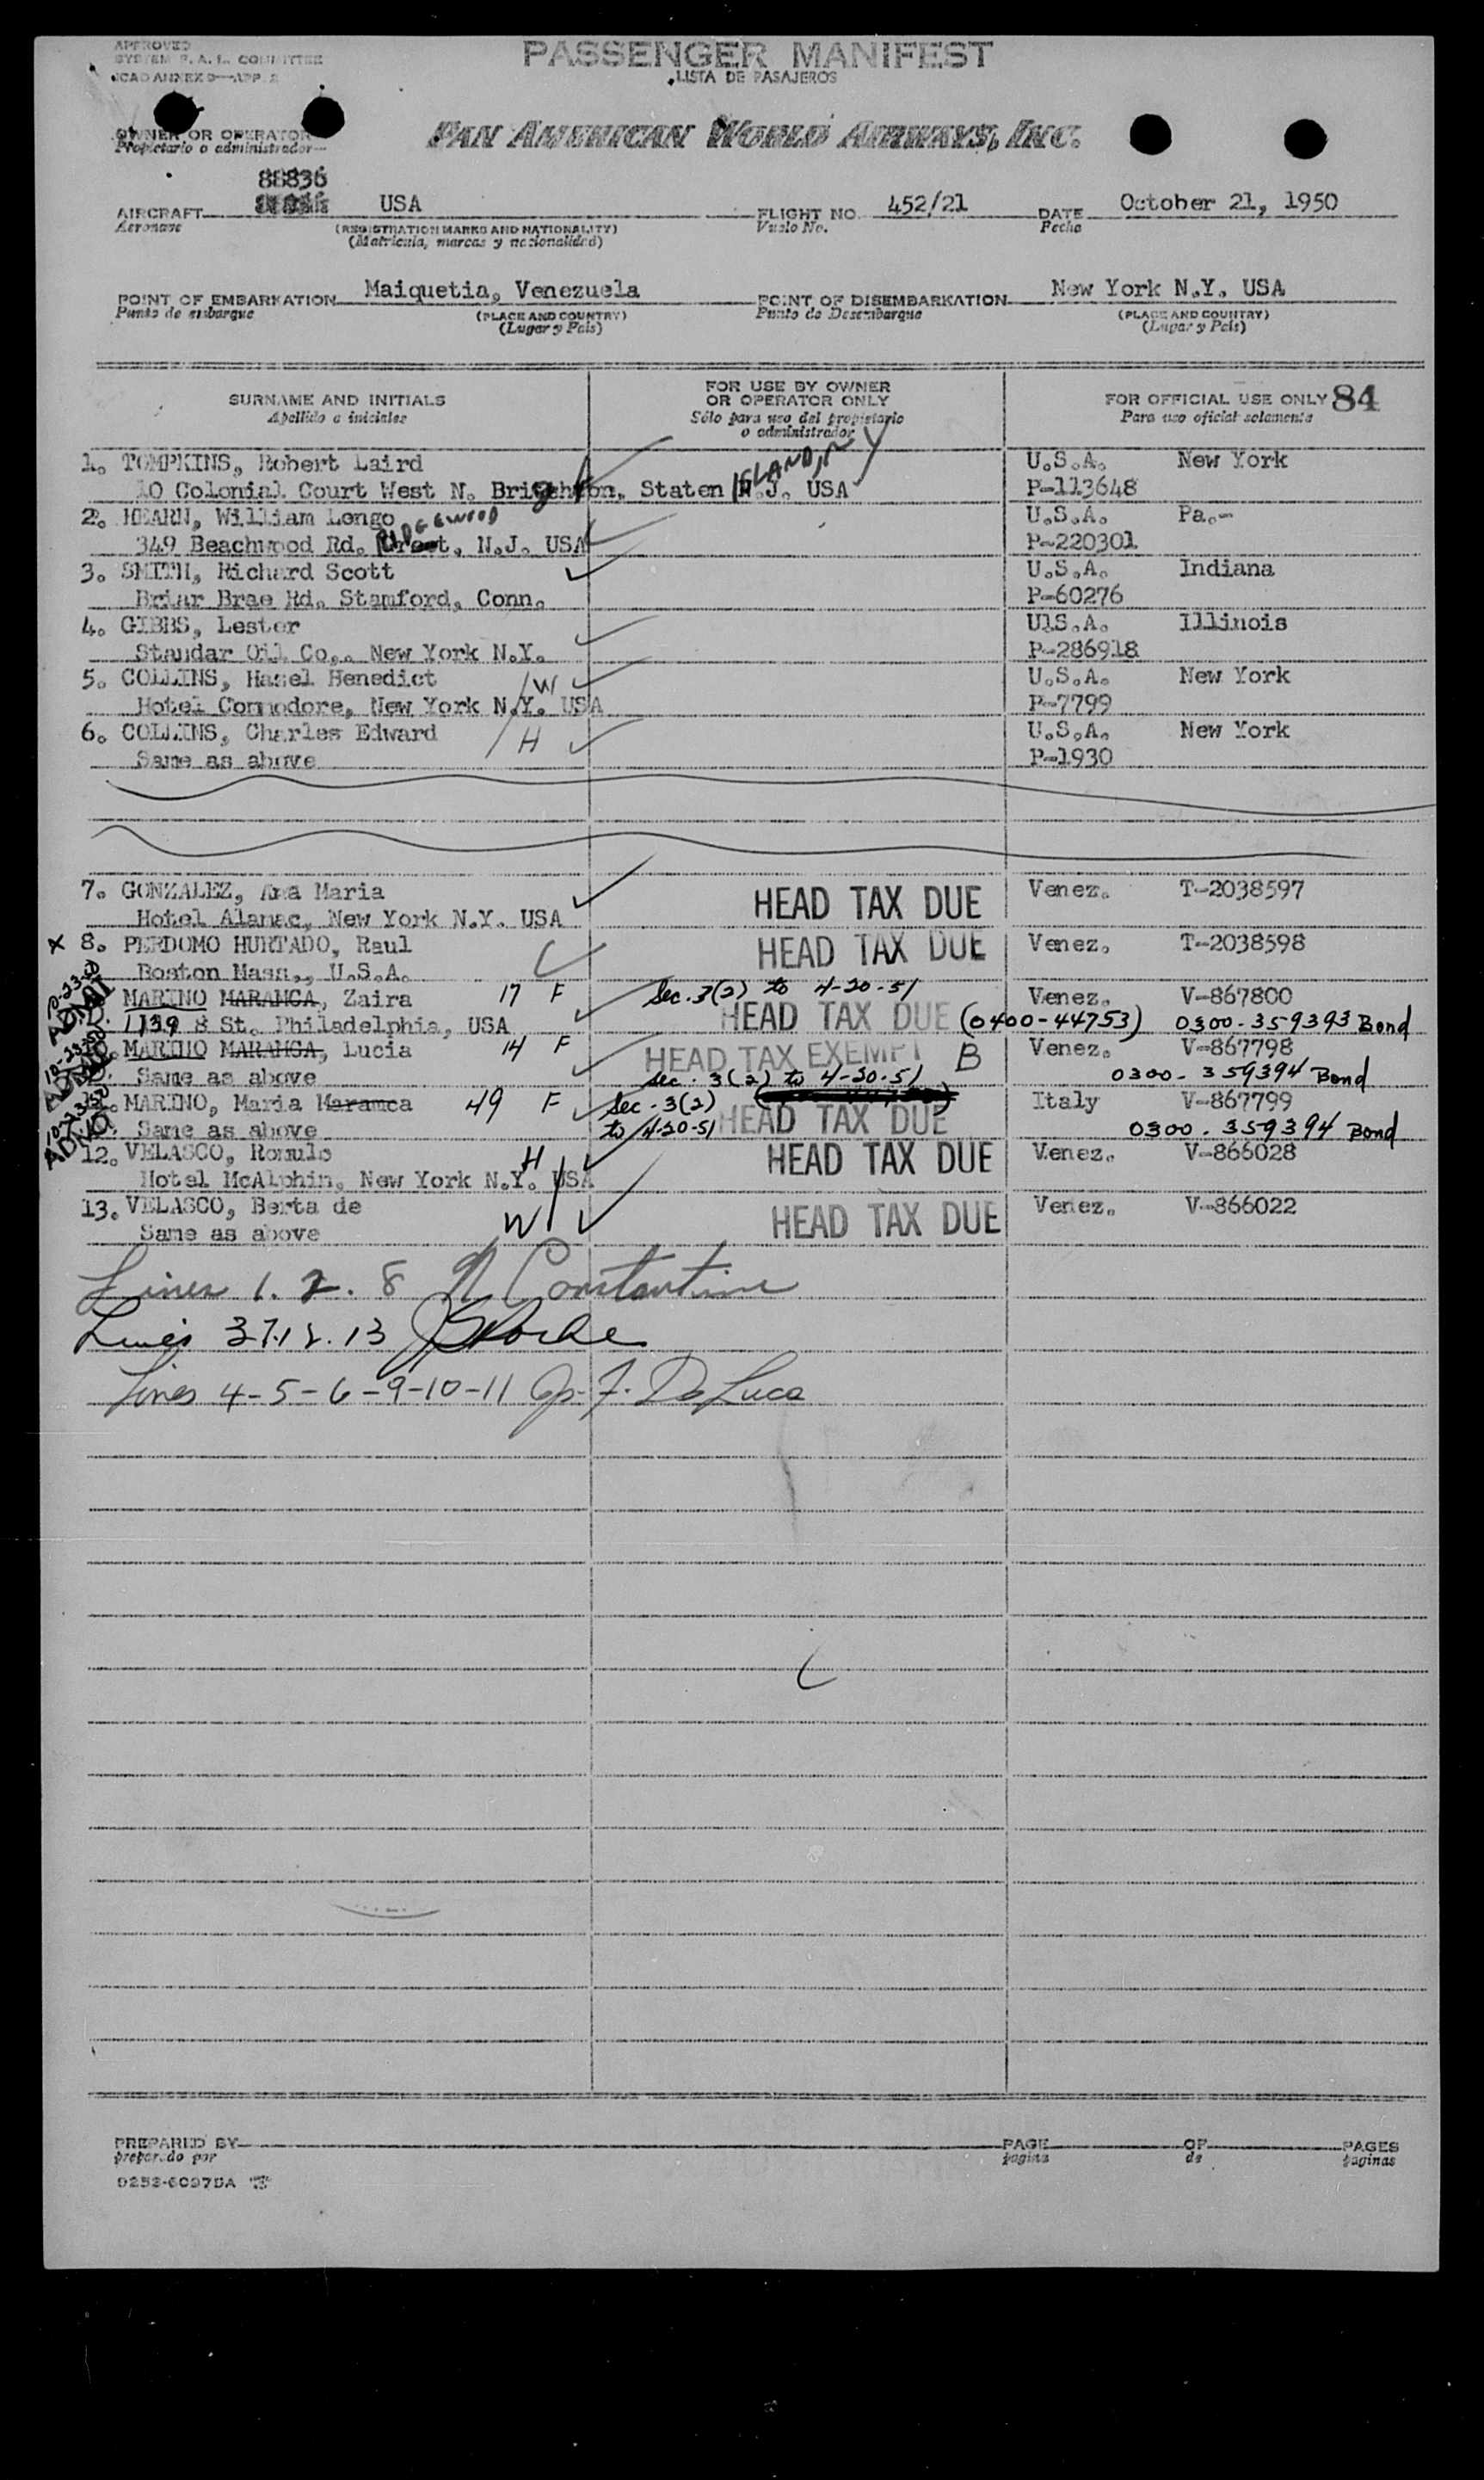 APPROVED
SYSTEM F.A.L. COMMITTEE
ICAO ANNEX 9—APP. 2
PASSENGER MANIFEST
LISTA DE PASAJEROS
OWNER OR OPERATOR
Propietario o administrador
PAN AMERICAN WORLD AIRWAYS, INC.
88836
AIRCRAFT USA FLIGHT NO. 452/21 DATE October 21, 1950
Aeronave (REGISTRATION MARKS AND NATIONALITY) Vuelo No. Fecha
(Matricula, marcas y nacionalidad)
POINT OF EMBARKATION Maiquetia, Venezuela POINT OF DISEMBARKATION New York N.Y. USA
Punto de embarque (PLACE AND COUNTRY) Punto de Desembarque (PLACE AND COUNTRY)
(Lugar y País) (Lugar y País)
SURNAME AND INITIALS FOR USE BY OWNER OR OPERATOR ONLY FOR OFFICIAL USE ONLY 84
Apellido e iniciales Sólo para uso del propietario o administrador Para uso oficial solamente
1. TOMPKINS, Robert Laird ISLAND, N Y U.S.A. New York
10 Colonial Court West N. Brighton, Staten N.J. USA P-113648
2. HEARN, William Longo U.S.A. Pa.-
349 Beachwood Rd. RIDGEWOOD, N.J. USA P-220301
3. SMITH, Richard Scott U.S.A. Indiana
Briar Brae Rd. Stamford, Conn. P-60276
4. GIBBS, Lester U1S.A. Illinois
Standar Oil Co,. New York N.Y. P-286918
5. COLLINS, Hasel Benedict W U.S.A. New York
Hotel Commodore, New York N.Y. USA P-7799
6. COLLINS, Charles Edward H U.S.A. New York
Same as above P-1930
7. GONZALEZ, Ana Maria HEAD TAX DUE Venez. T-2038597
Hotel Alamac, New York N.Y. USA
X 8. PERDOMO HURTADO, Raul HEAD TAX DUE Venez. T-2038598
Boston Mass., U.S.A.
10-23-50 ADMT MARINO MARAMCA, Zaira 17 F Sec. 3(2) to 4-20-51 Venez. V-867800
1139 8 St. Philadelphia, USA HEAD TAX DUE (0400-44753) 0300-359393 Bond
10-23-50 MARINO MARAMCA, Lucia 14 F HEAD TAX EXEMPT B Venez. V-867798
Same as above Sec. 3(2) to 4-20-51 0300-359394 Bond
10-23-50 11. MARINO, Maria Maramca 49 F Sec. 3(2) Italy V-867799
Same as above to 4-20-51 HEAD TAX DUE 0300-359394 Bond
12. VELASCO, Romulo H HEAD TAX DUE Venez. V-866028
Hotel McAlphin, New York N.Y. USA
13. VELASCO, Berta de W HEAD TAX DUE Venez. V-866022
Same as above
Lines 1. 2. 8 N Constantine
Lines 3 7.12.13
Lines 4-5-6-9-10-11 F. De Luca
PREPARED BY PAGE OF PAGES
preparado por pagina de paginas